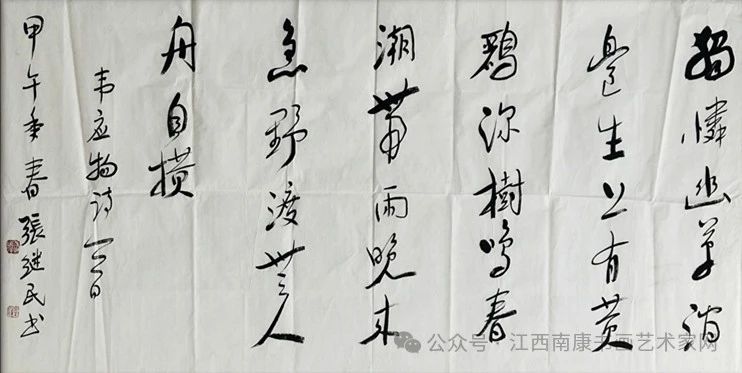 獨憐幽草澗
邊生上有黄
鸝深樹鳴春
潮帶雨晚来
急野渡無人
舟自横
韦应物诗一首
甲午年春張继民书
公众号·江西南康书画艺术家网